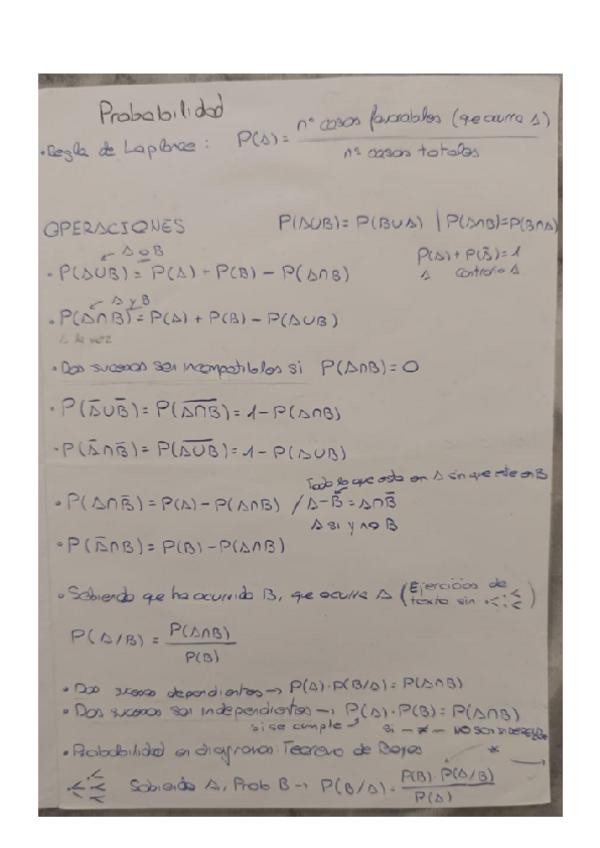 Probabilidad
• Regla de Laplace: P(A) = nº casos favorables (que ocurra A) / nº casos totales
OPERACIONES P(A∪B) = P(B∪A) | P(A∩B) = P(B∩A)
A o B
• P(A∪B) = P(A) + P(B) - P(A∩B)
P(A) + P(Ā) = 1
A contrario A
A y B
• P(A∩B) = P(A) + P(B) - P(A∪B)
a la vez
• Dos sucesos son incompatibles si P(A∩B) = 0
• P(Ā∪B̄) = P(A̅∩̅B̅) = 1 - P(A∩B)
• P(Ā∩B̄) = P(A̅∪̅B̅) = 1 - P(A∪B)
Todo lo que esta en A sin que este en B
• P(A∩B̄) = P(A) - P(A∩B) / A - B = A∩B̄
A si y no B
• P(Ā∩B) = P(B) - P(A∩B)
• Sabiendo que ha ocurrido B, que ocurra A (Ejercicios de texto sin)
P(A/B) = P(A∩B) / P(B)
• Dos sucesos dependientes → P(A) · P(B/A) = P(A∩B)
• Dos sucesos son independientes → P(A) · P(B) = P(A∩B)
si se cumple si - ≠ - NO SON INDEPEND
• Probabilidad en diagramas Teorema de Bayes *
Sabiendo A, Prob B → P(B/A) = P(B) · P(A/B) / P(A)